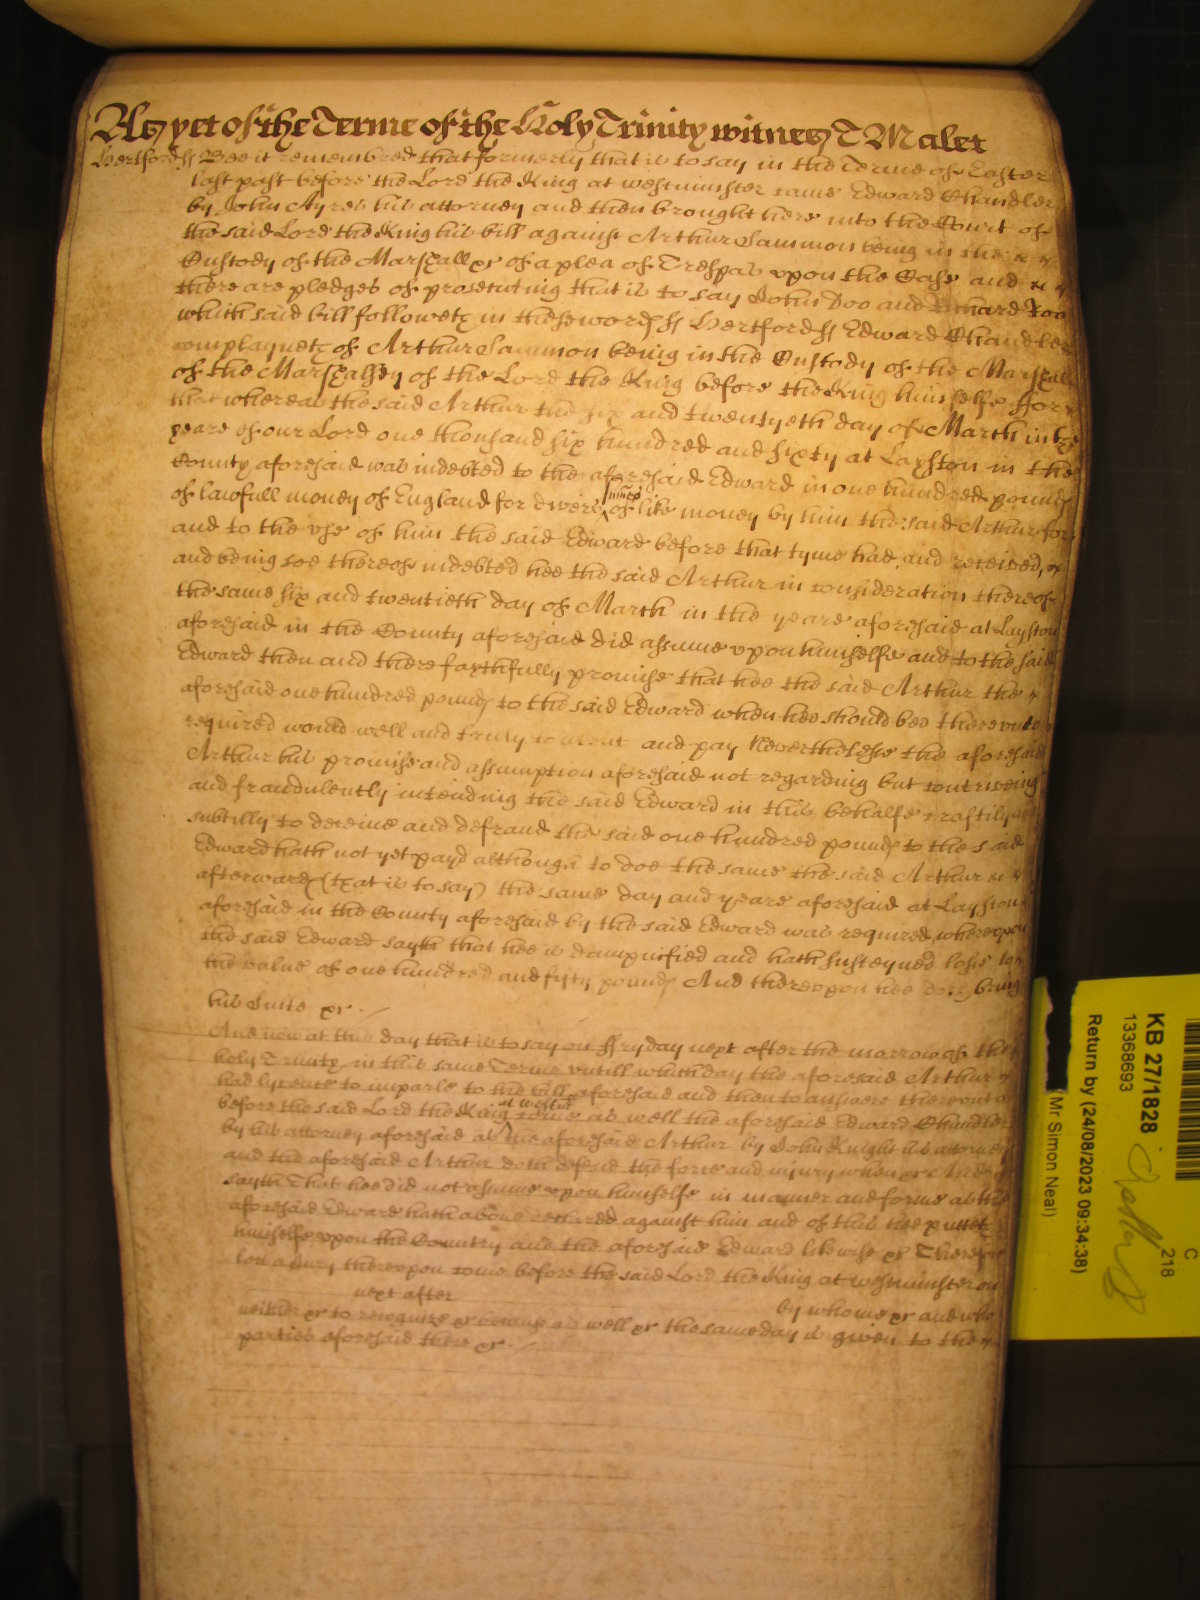 As yet of the Terme of the Holy Trinity witnes T Malet
Hertford ss Bee it remembred that formerly that is to say in the Terme of Easter
last past before the Lord the King at Westminster came Edward Chandler
by John Ayres his attorney and then brought here into the Court of
the said Lord the King his bill against Arthur Sammon being in the
Custody of the Marshall &c of a plea of Trespas upon the Case and
there are pledges of prosecuting that is to say John Doo and Richard Roo
which said bill followeth in these words ss Hertford ss Edward Chandler
complayneth of Arthur Sammon being in the Custody of the Marshall
of the Marshalsey of the Lord the King before the King himselfe ffor
that whereas the said Arthur the six and twentyeth day of March in the
yeare of our Lord one thousand six hundred and sixty at Layston in the
County aforesaid was indebted to the aforesaid Edward in one hundred pounds
of lawfull money of England for divers summes of like money by him the said Arthur for
and to the use of him the said Edward before that tyme had and received,
and being soe thereof indebted hee the said Arthur in consideration thereof
the same six and twentieth day of March in the yeare aforesaid at Layston
aforesaid in the County aforesaid did assume upon himselfe and to the said
Edward then and there faythfully promise that hee the said Arthur the
aforesaid one hundred pounds to the said Edward when hee should bee thereunto
required would well and truly content and pay Neverthelesse the aforesaid
Arthur his promise and assumption aforesaid not regarding but contriveing
and fraudulently intending the said Edward in this behalfe craftily
subtilly to deceive and defraud the said one hundred pounds to the said
Edward hath not yet payd although to doe the same the said Arthur
afterwards (that is to say) the same day and yeare aforesaid at Layston
aforesaid in the County aforesaid by the said Edward was required, whereupon
the said Edward sayth that hee is dampnified and hath susteyned losse to
the value of one hundred and fifty pounds And thereupon hee bring
his Suite &c.
And now at this day that is to say on ffryday next after the morrow of the
holy Trinity in this same Terme untill which day the aforesaid Arthur
had lycence to imparle to the bill aforesaid and then to answere thereunto
before the said Lord the King at Westmr come as well the aforesaid Edward Chandler
by his attorney aforesaid as the aforesaid Arthur by John Knight his attorney
and the aforesaid Arthur doth defend the force and injury when &c And
sayth That hee did not assume upon himselfe in manner and forme as the
aforesaid Edward hath above declared against him and of this hee putteth
himselfe upon the Country and the aforesaid Edward likewise &c Therefore
lett a Jury thereupon come before the said Lord the King at Westminster on
next after by whome &c and who
neither &c to recognize &c because as well &c the same day is given to the
parties aforesaid there &c.
KB 27/1828
13368693
Return by (24/08/2023 09:34:38)
(Mr Simon Neal)
C
218